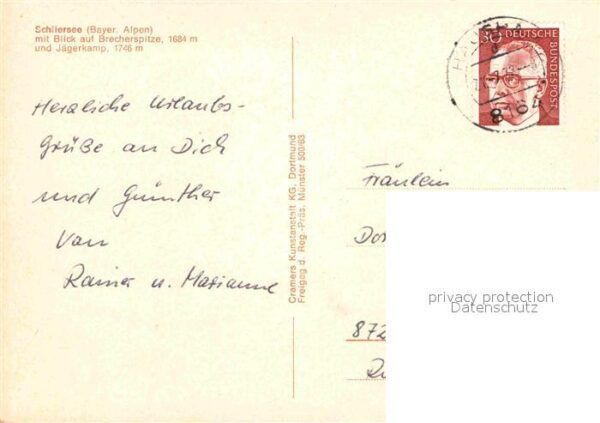 Schliersee (Bayer. Alpen)
mit Blick auf Brecherspitze, 1684 m
und Jägerkamp, 1746 m
Herzliche Urlaubs-
grüße an Dich
und Günther
von
Rainer u. Marianne
Cramers Kunstanstalt KG, Dortmund
Freigeg d. Reg.-Präs. Münster 500/63
30
DEUTSCHE
BUNDESPOST
8164
Fräulein
Dor
872
privacy protection
Datenschutz